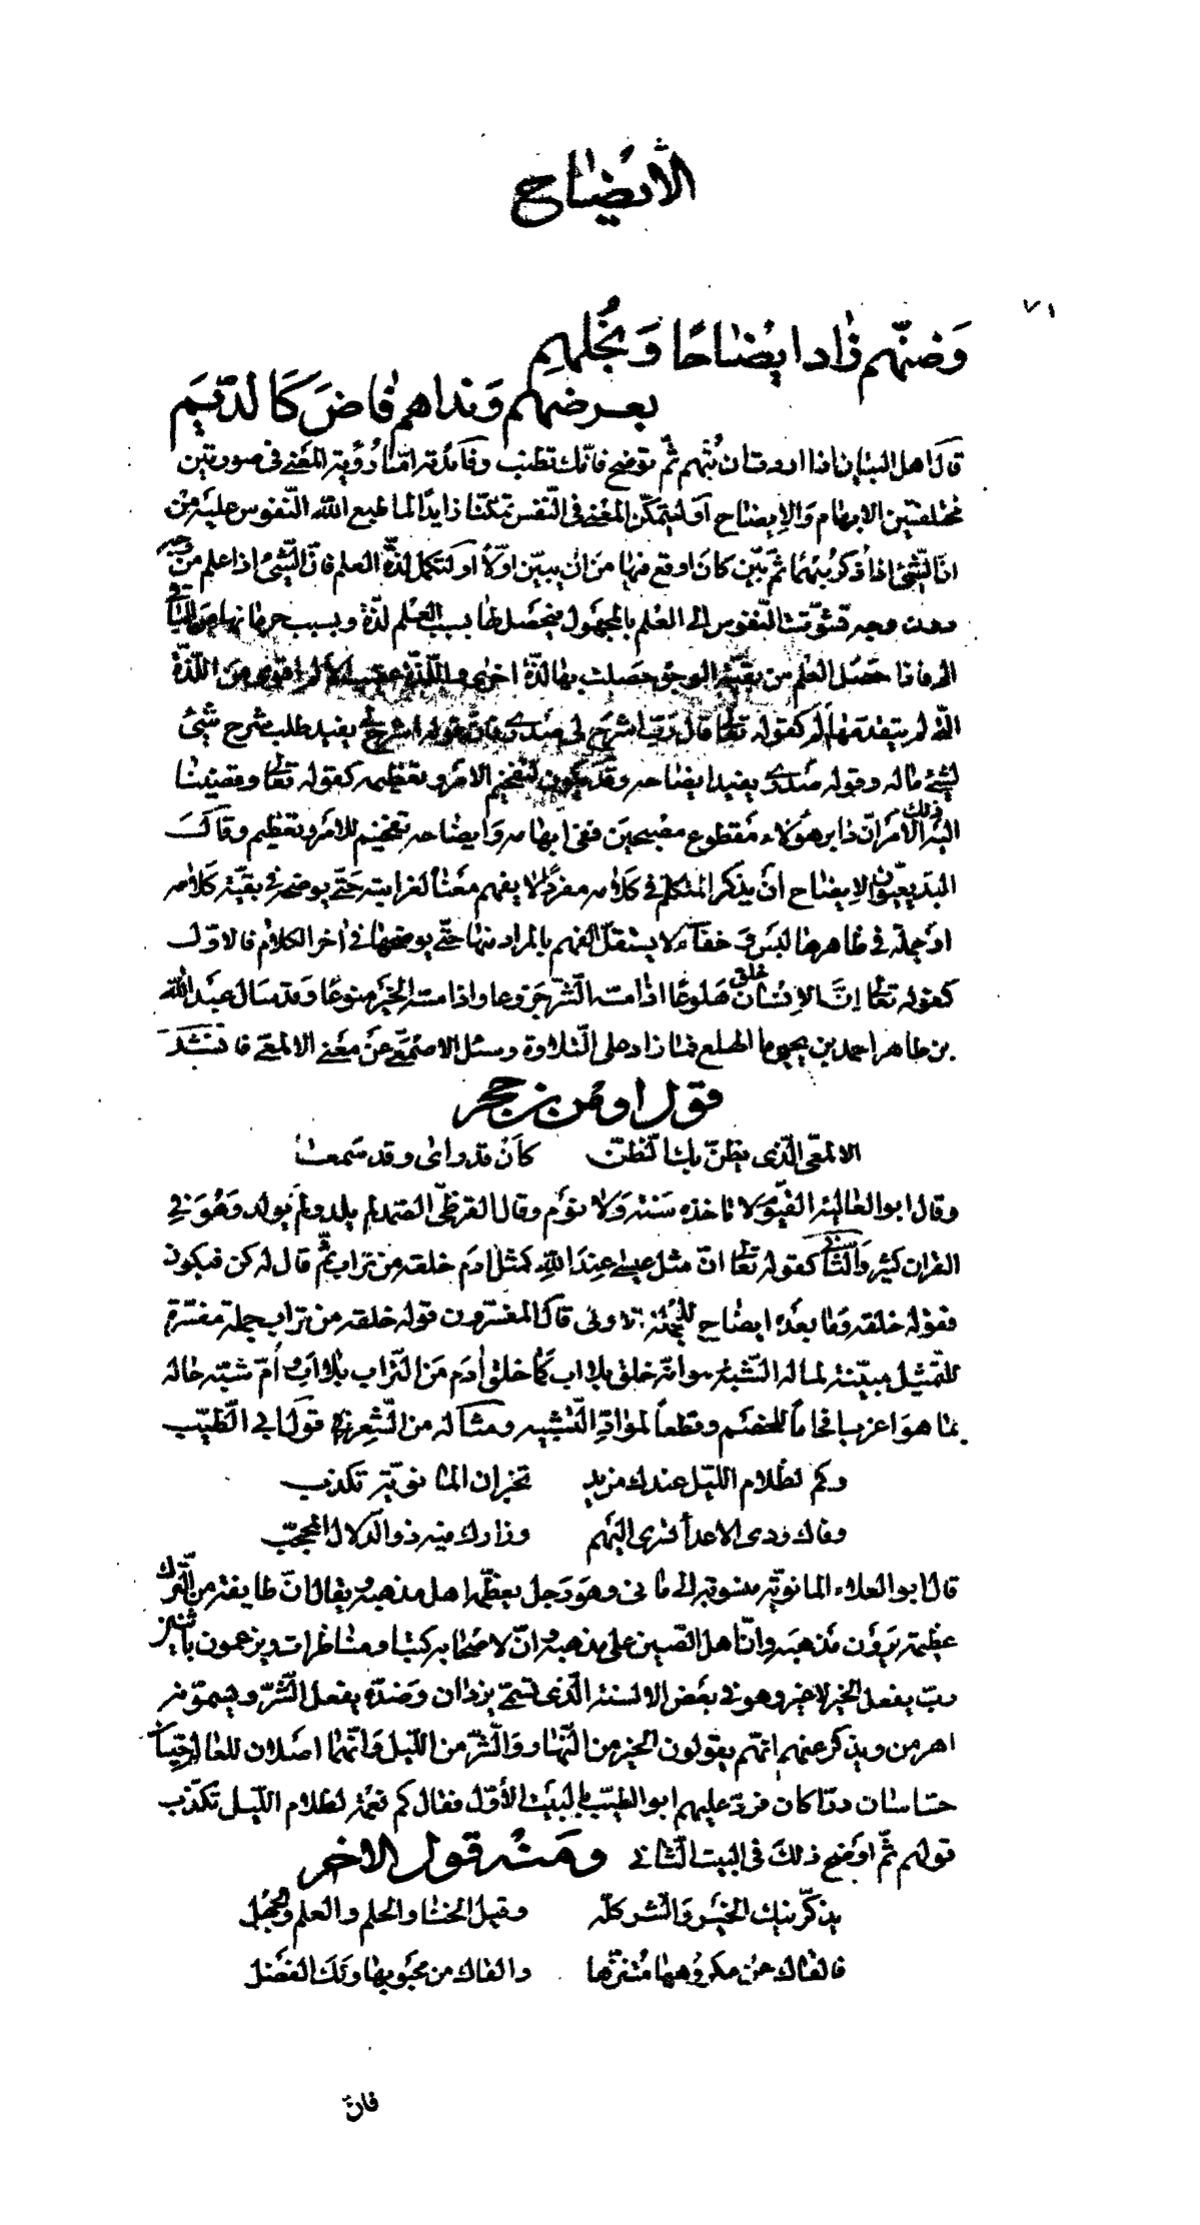 الايضاح
٧١
وَضنّهم زاد ايضاحًا وَبُخلهم
بعرضهم وَنداهم فاض كَالدّيَم
قال اهل البيان اذا اردت ان تُبهم ثم توضح فانّك تطنب وفائدته امّا رُؤية المعنى فى صورتين
مختلفتين الابهام وَالايضاح اَو ليتمكّن المعنى فى النّفس تمكنًا زايدًا لما طبع الله النّفوس عليه من
انّ الشّئ اذا ذكر مُبهمًا ثم بيّن كان اوقع فيها من ان يبيّن اوّلًا او لتكمل لذّة العلم فانّ الشّئ اذا علم من وجه
دون وجه تشوّقت النّفوس الى العلم بالمجهول فيحصل لها بسبب العلم لذّة وبسبب حرمانها من الباقى
الم فاذا حصل العلم من بقيّة الوجوه حصلت بها لذّة اخرى واللّذّة عقيب الالم اقوى من اللّذّة
الّتى لم يتقدمها الم كقوله تعالى قال ربّ اشرح لى صدرى فانّ قوله اشرح لى يفيد طلب شرح شئ
لشئ ماله وقوله صدرى يفيد ايضاحه وقد يكون لتفخيم الامر وتعظيمه كقوله تعالى وقضينا
اليه ذلك الامر انّ دابر هؤلاء مقطوع مصبحين ففى ابهامه وَايضاحه تفخيم للامر وتعظيم وقالت
البديعيّون الايضاح ان يذكر المتكلم فى كلامه مفردًا لا يفهم معناه لغرابته حتّى يوضحه فى بقيّة كلامه
او جملة فى ظاهرها لبس وَ خفآء لا يستقلّ الفهم بالمراد منها حتّى يوضحها فى اخر الكلام فالاوّل
كقوله تعالى انّ الانسان خلق هلوعًا اذا مسّه الشّر جزوعا واذا مسّه الخير منوعًا وَقد سال عبد الله
بن طاهر احمد بن يحيى ما الهلع فما زاد على التّلاوة وسئل الاصمعىّ عن معنى الالمعى فانشد
قول اوس بن حجر
الالمعىّ الّذى يظنّ بك الظّنّ كأن قد راى وقد سَمعا
وقال ابو العالية القيّوم لا تاخذه سَنة وَلا نوم وقال القرظىّ الصّمد لم يلد ولم يولد وَهُوَ فى
القران كثير وَالثّانى كقوله تعالى انّ مثل عيسى عِندَ اللهِ كمثل ادم خلقه من تراب ثم قال له كن فيكون
فقوله خلقه وَما بعده ايضاح للجُملة الاولى قال المفسرون قوله خلقه من تراب جملة مفسّرة
للتّمثيل مبيّنة لما له التّشبيه وهو انّه خلق بلا اب كما خلق ادم من التّراب بلا اب و اُمّ شبّه حاله
بما هو اغرب افحاماً للخصم وقطعاً لموادّ التّشبيه ومثاله من الشّعر قول ابى الطّيّب
وكم لظلام اللّيل عندك من يد تخبر ان المانويّة تكذب
وقاك ردى الاعدآ تسرى اليهم وزارك فيه ذو الدّلال المحجّب
قال ابو العلاء المانويّة منسوبة الى مانى وهو رَجل يعظّمه اهل مذهبه ويقال انّ طايفة من التّرك
عظيمة يَرَوْن مَذهبه وانّ اهل الصّين على مذهبه وانّ لاصحابه كتبا ومناظرات ويزعمون باثنين
ربّ يفعل الخير لا غير وهو فى بعض الالسنة الّذى تسمّى يزدان وَضدّه يفعل الشّرّ ويسمّونه
اهرمن ويذكر عنهم انّهم يقولون الخير من النّهار وَالشّرّ من اللّيل وَانّهما اصلان للعالم حيّان
حسّاسان درّاكان فردّ عليهم ابو الطيّب فى البيت الأوّل فقال كم نعمة لظلام اللّيل تكذّب
قولهم ثمّ اوضح ذلك فى البيت الثّانى وَمَثله قول الاخر
يذكّرنيك الخَير وَالشّر كلّه وقيل الخنا والحلم والعلم وَالجَهل
فالقاك عن مكروُهها مُتنزّها والقاك من محبُوبها وَلَكَ الفَضل
فانّ